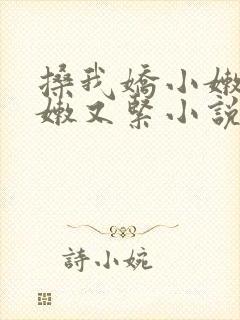 搡我嬌小嫩
嫩又緊小說
詩小婉